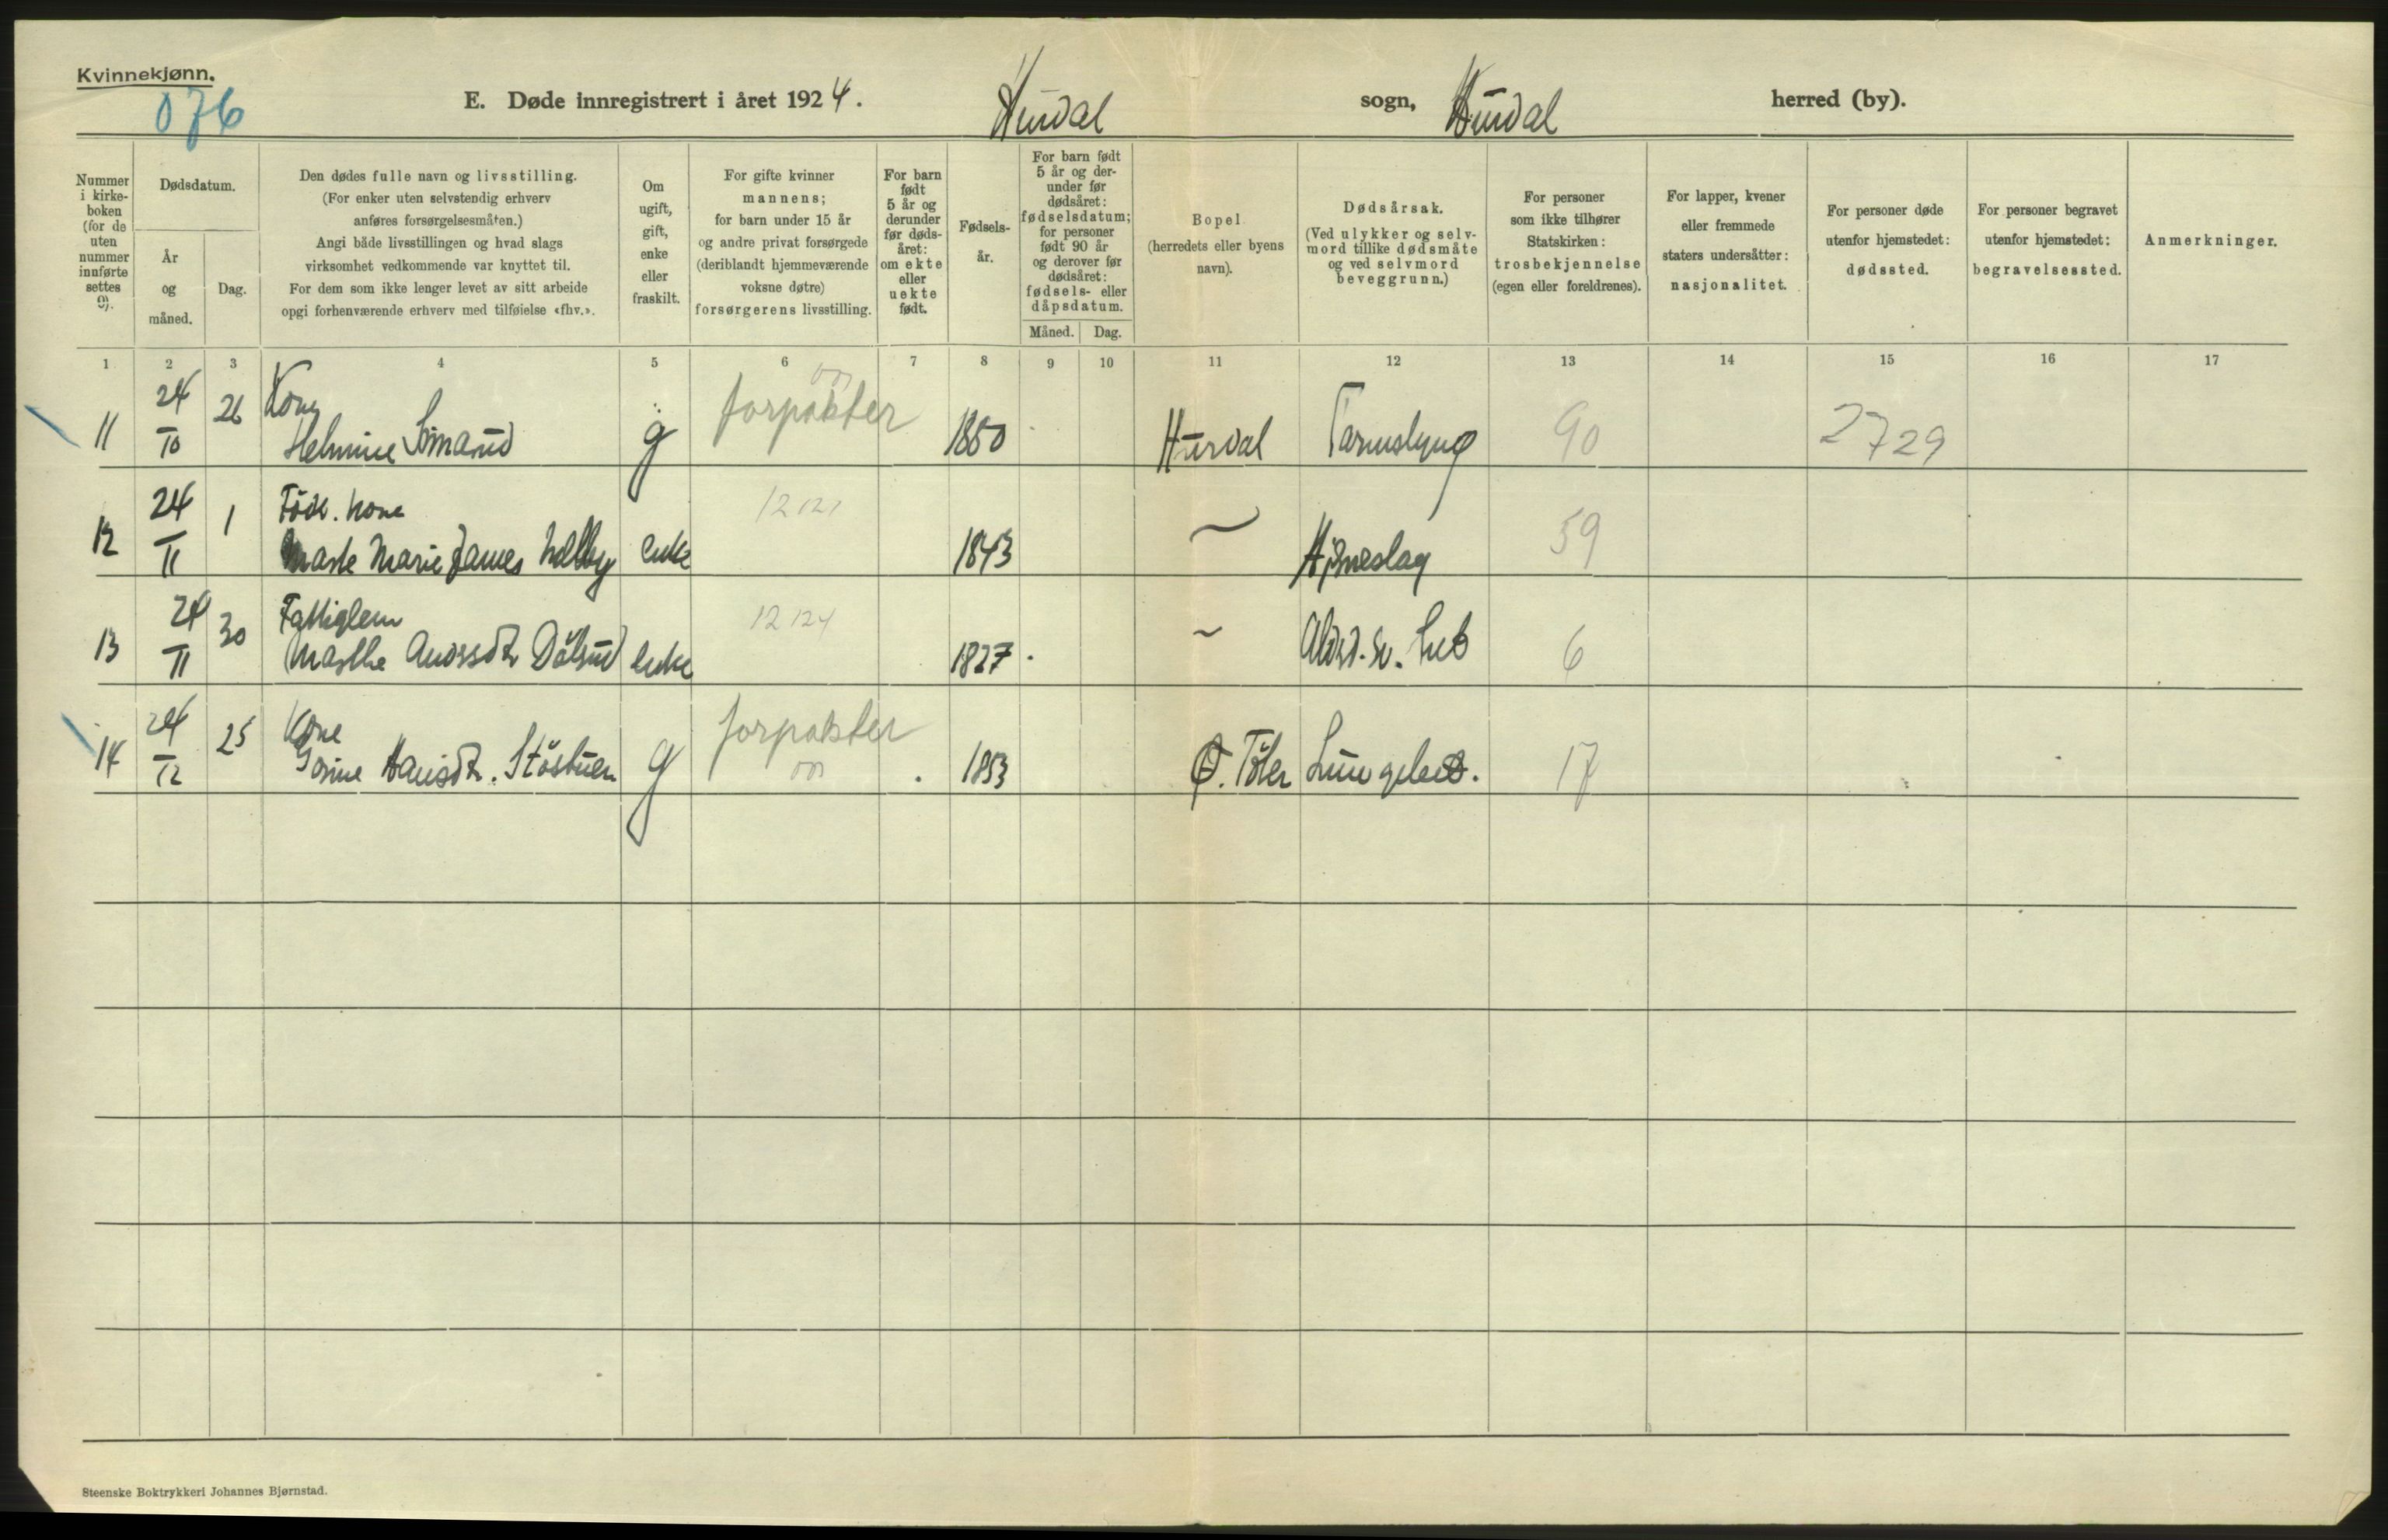 Kvinnekjønn.
076
E. Døde innregistrert i året 1924. Hurdal sogn, Hurdal herred (by).
Nummer
i kirke-
boken
(for de
uten
nummer
innførte
settes
0).
Dødsdatum.
År
og
måned.
Dag.
Den dødes fulle navn og livsstilling.
(For enker uten selvstendig erhverv
anføres forsørgelsesmåten.)
Angi både livsstillingen og hvad slags
virksomhet vedkommende var knyttet til.
For dem som ikke lenger levet av sitt arbeide
opgi forhenværende erhverv med tilføielse «fhv.».
Om
ugift,
gift,
enke
eller
fraskilt.
For gifte kvinner
mannens;
for barn under 15 år
og andre privat forsørgede
(deriblandt hjemmeværende
voksne døtre)
forsørgerens livsstilling.
For barn
født
5 år og
derunder
før døds-
året:
om ekte
eller
uekte
født.
Fødsels-
år.
For barn født
5 år og der-
under før
dødsåret:
fødselsdatum;
for personer
født 90 år
og derover før
dødsåret:
fødsels- eller
dåpsdatum.
Måned. Dag.
Bopel
(herredets eller byens
navn).
Dødsårsak.
(Ved ulykker og selv-
mord tillike dødsmåte
og ved selvmord
beveggrunn.)
For personer
som ikke tilhører
Statskirken:
trosbekjennelse
(egen eller foreldrenes).
For lapper, kvener
eller fremmede
staters undersåtter:
nasjonalitet.
For personer døde
utenfor hjemstedet:
dødssted.
For personer begravet
utenfor hjemstedet:
begravelsessted.
Anmerkninger.
1 2 3 4 5 6 7 8 9 10 11 12 13 14 15 16 17
11 24/10 26 Kone g forpakter 1850 Hurdal Tarmslyng 90 2729
Helmine
12 24/11 1 Föder. kone enke 12121 1843 ~ Hjerneslag 59
Marte Marie
13 24/11 30 Fattiglem enke 12124 1827 ~ Alderd. sv. 6
Marthe
14 24/12 25 Kone g forpakter 1853 Ø. Töten Lungebet. 17
Hansdtr. Stöstuen
Steenske Boktrykkeri Johannes Bjørnstad.